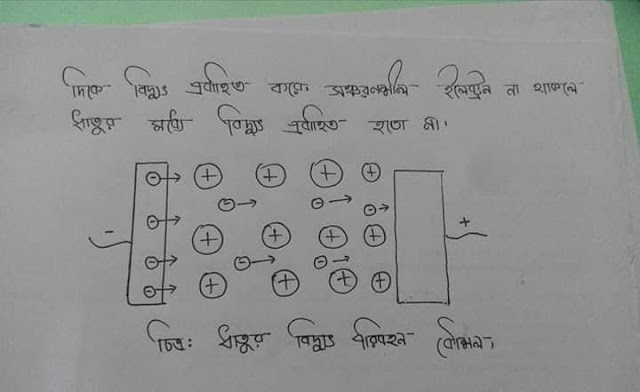 দিকে বিদ্যুৎ প্রবাহিত করে। সঞ্চরণশীল ইলেকট্রন না থাকলে
ধাতুর মধ্যে বিদ্যুৎ প্রবাহিত হতো না।
- + +
চিত্র: ধাতুর বিদ্যুৎ পরিবহন কৌশল।